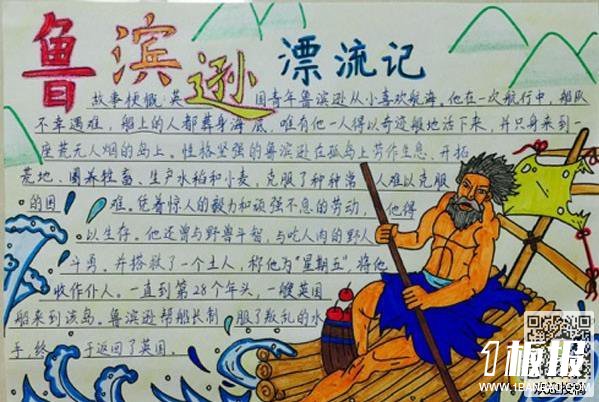 鲁滨逊漂流记
故事梗概:英国青年鲁滨逊从小喜欢航海。他在一次航行中,船队
不幸遇难,船上的人都葬身海底,唯有他一人得以奇迹般地活下来,并只身来到一
座荒无人烟的岛上。性格坚强的鲁滨逊在孤岛上劳作生息、开拓
荒地、圈养牲畜、生产水稻和小麦,克服了种种常人难以克服
的困难。凭着惊人的毅力和顽强不息的劳动,他得
以生存。他还曾与野兽斗智,与吃人肉的野人
斗勇。并搭救了一个土人,称他为"星期五"将他
收作仆人。一直到第28个年头,一艘英国
船来到该岛。鲁滨逊帮船长制服了叛乱的水
手,终于返回了英国。
1板报
WWW.1BANBAO.COM
欢迎投稿